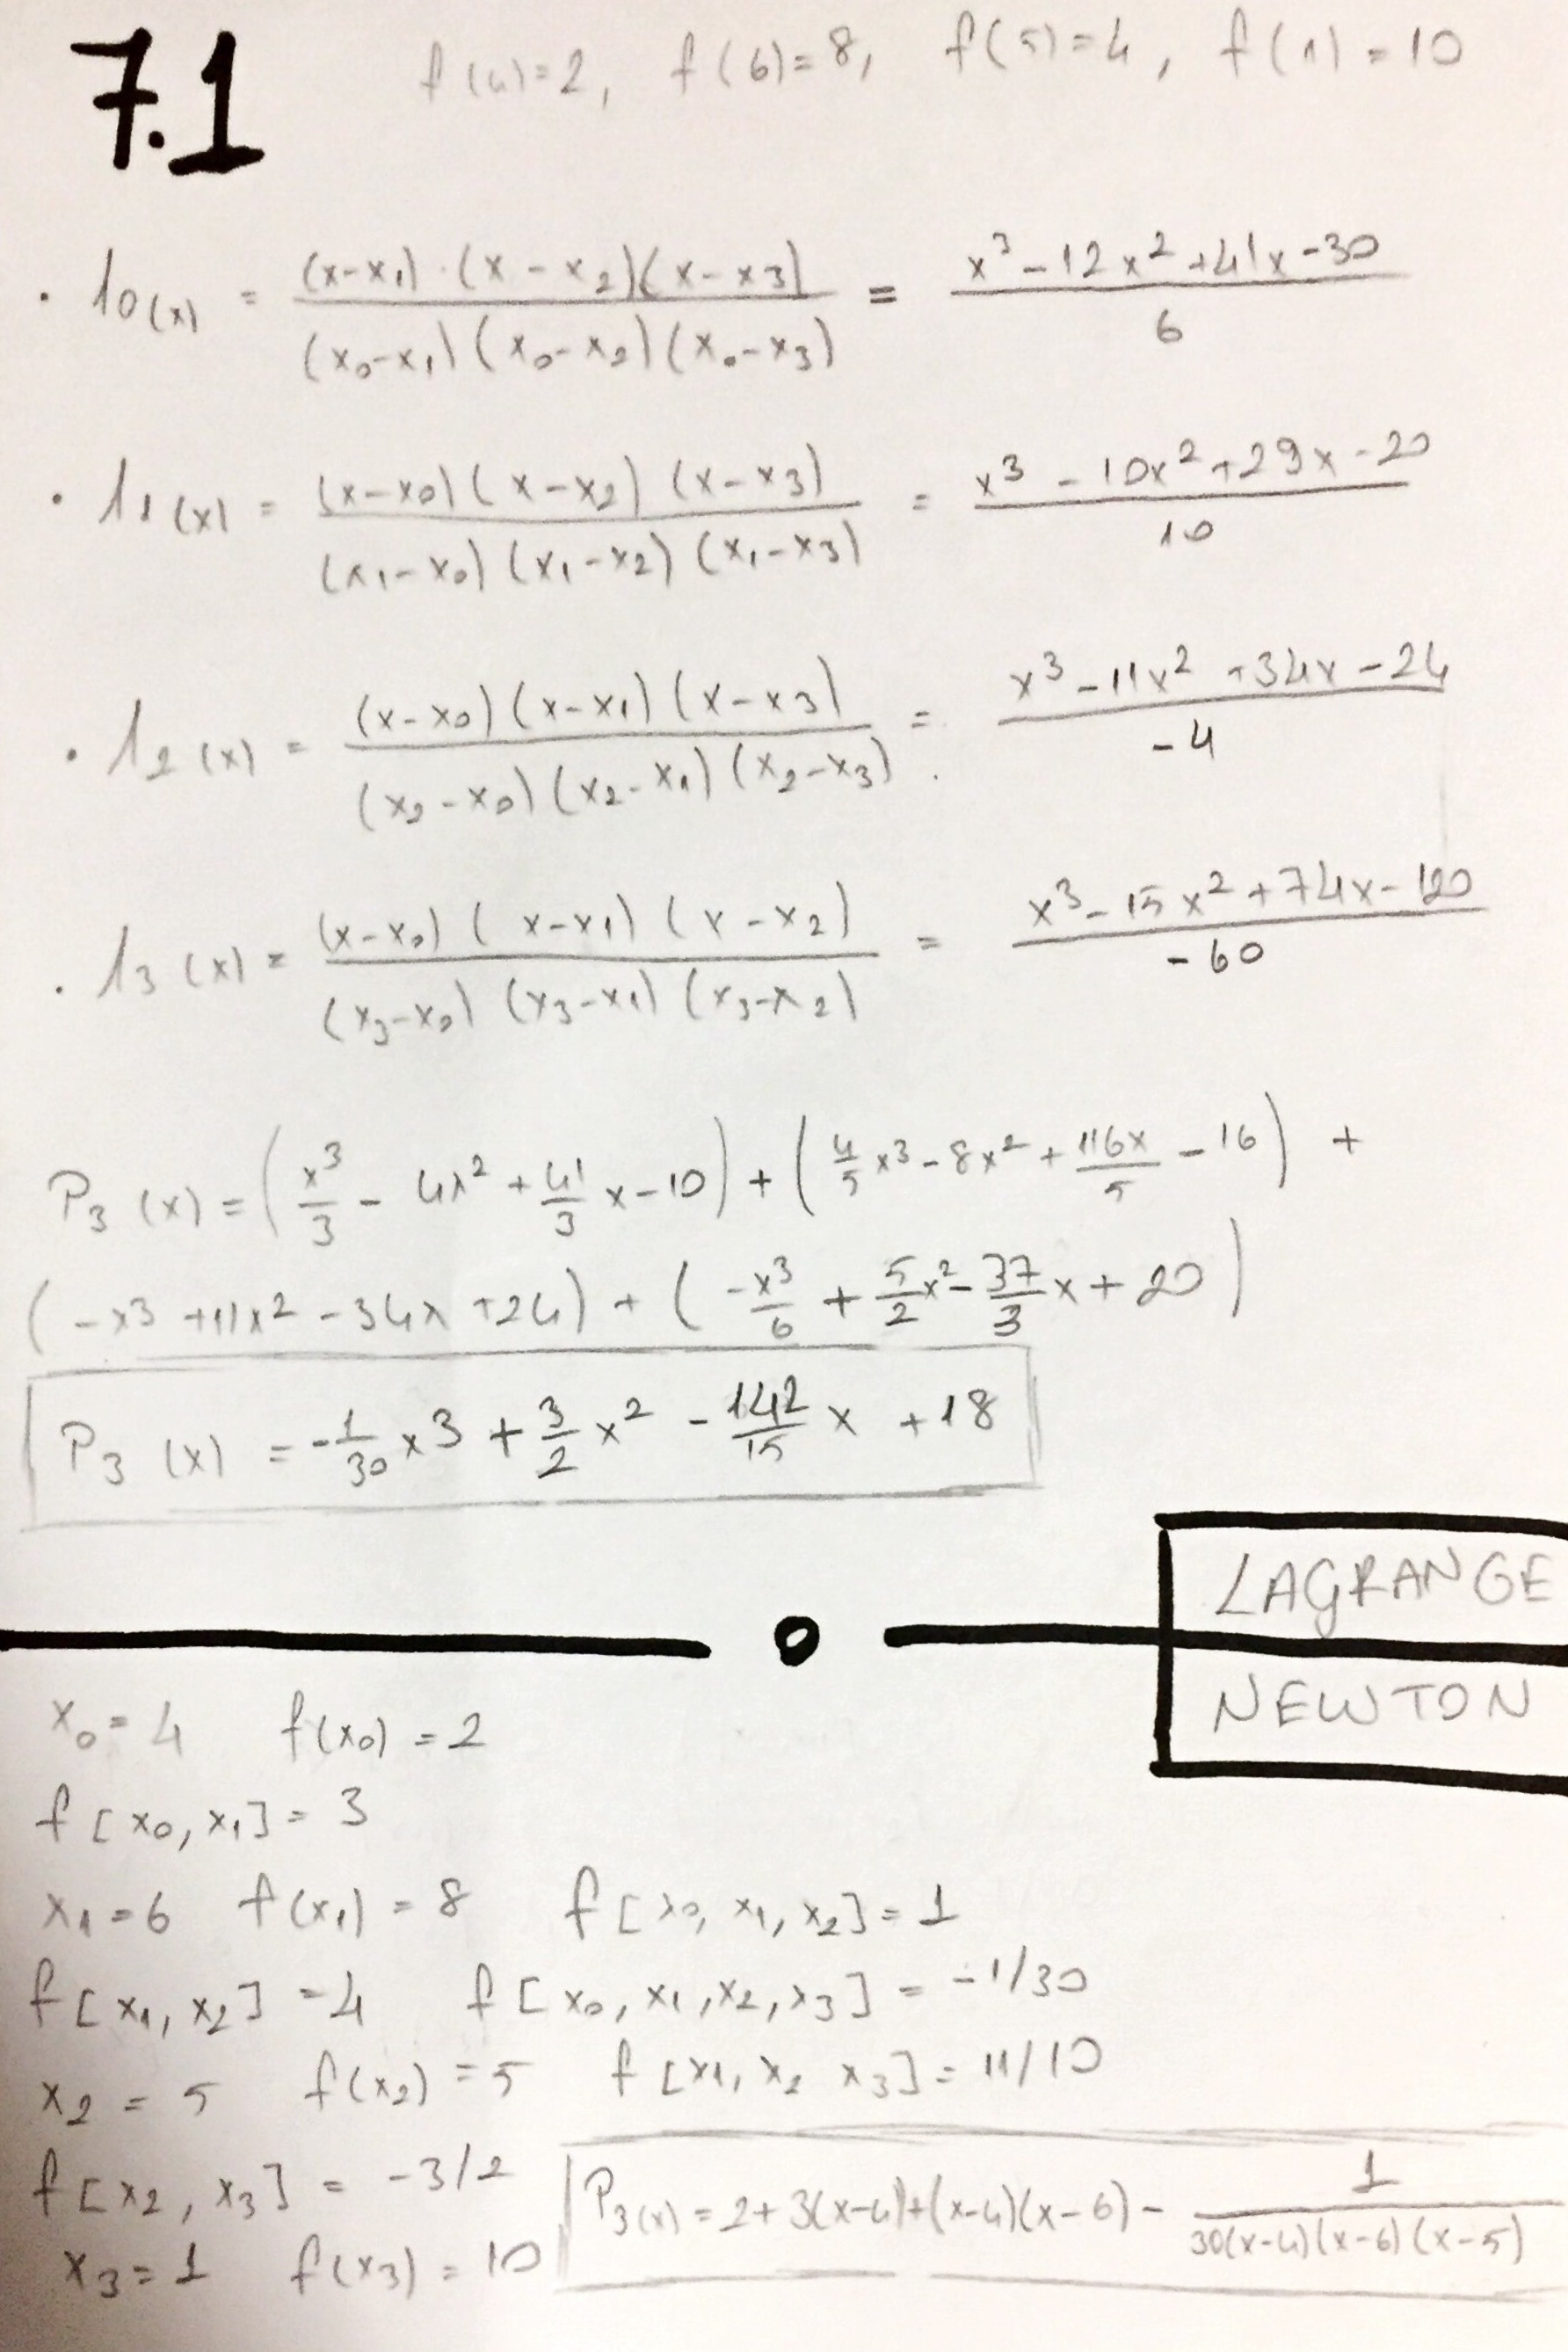 7.1
f(4)=2, f(6)=8, f(5)=4, f(1)=10
· l₀(x) = (x-x₁)·(x-x₂)(x-x₃) / (x₀-x₁)(x₀-x₂)(x₀-x₃) = x³-12x²+41x-30 / 6
· l₁(x) = (x-x₀)(x-x₂)(x-x₃) / (x₁-x₀)(x₁-x₂)(x₁-x₃) = x³-10x²+29x-20 / 10
· l₂(x) = (x-x₀)(x-x₁)(x-x₃) / (x₂-x₀)(x₂-x₁)(x₂-x₃) = x³-11x²+34x-24 / -4
· l₃(x) = (x-x₀)(x-x₁)(x-x₂) / (x₃-x₀)(x₃-x₁)(x₃-x₂) = x³-15x²+74x-120 / -60
P₃(x) = (x³/3 - 4x² + 41/3 x - 10) + (4/5 x³ - 8x² + 116x/5 - 16) +
(-x³+11x²-34x+24) + (-x³/6 + 5/2 x² - 37/3 x + 20)
P₃(x) = -1/30 x3 + 3/2 x² - 142/15 x + 18
LAGRANGE
NEWTON
x₀=4 f(x₀)=2
f[x₀,x₁]=3
x₁=6 f(x₁)=8 f[x₀,x₁,x₂]=1
f[x₁,x₂]=4 f[x₀,x₁,x₂,x₃]=-1/30
x₂=5 f(x₂)=5 f[x₁,x₂ x₃]=11/10
f[x₂,x₃]=-3/2
P₃(x)=2+3(x-4)+(x-4)(x-6)- 1 / 30(x-4)(x-6)(x-5)
x₃=1 f(x₃)=10